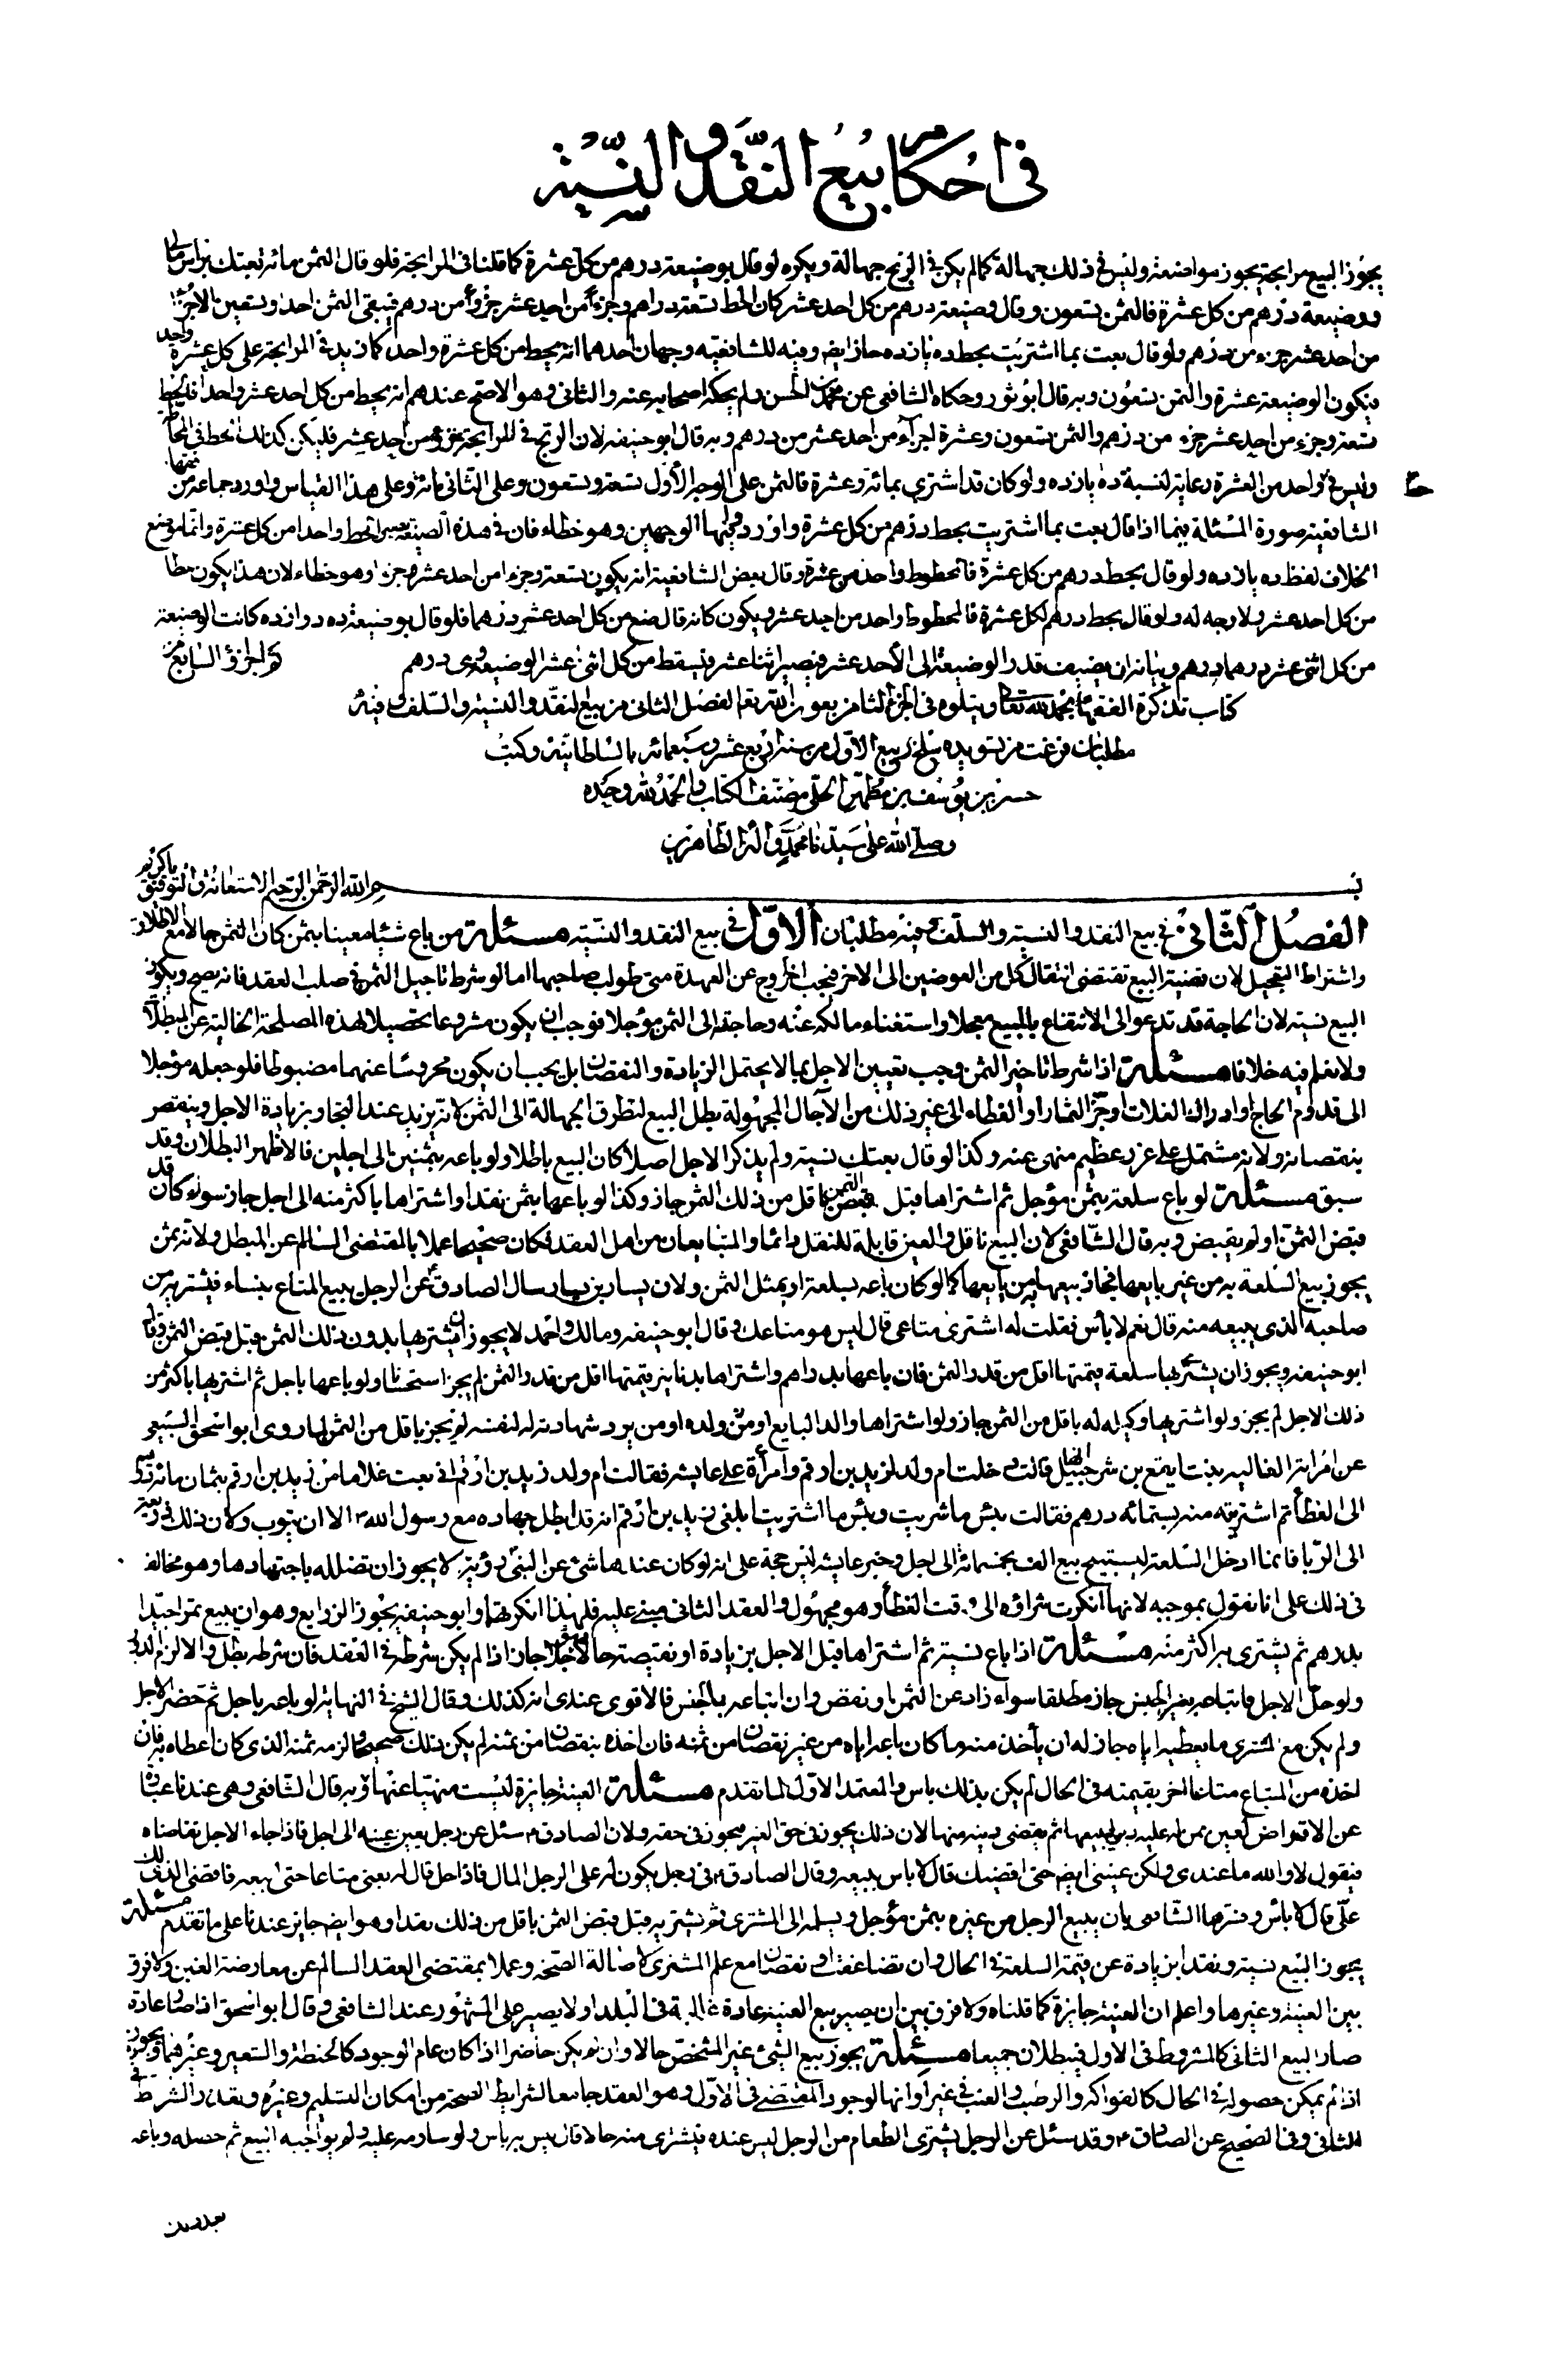 في احكام بيع النقد والنسيئة
يجوز البيع مرابحة يجوز مواضعة وليس في ذلك جهالة كما لم يكن في الربح جهالة ويكره لو قال بوضيعة درهم من كل عشرة كما قلنا في المرابحة فلو قال الثمن مائة بعتك براس مالي
ووضيعة درهم من كل عشرة فالثمن تسعون وقال وضيعة درهم من كل احد عشر كان الحط تسعة دراهم وجزءا من احد عشر جزءا من درهم فيبقى الثمن احد وتسعين الاجزءا
من احد عشر جزء من درهم ولو قال بعت بما اشتريت بحط ده يازده جاز ايضا وفيه للشافعيه وجهان احدهما انه يحط من كل عشرة واحد كما زيد في المرابحة على كل عشرة واحد
فيكون الوضيعة عشرة والثمن تسعون وبه قال ابو ثور وحكاه الشافعي عن محمد بن الحسن ولم يحكه اصحابه عنه والثاني وهو الاصح عندهم انه يحط من كل احد عشر واحد فليحط
تسعة وجزء من احد عشر جزء من درهم والثمن تسعون وعشرة اجزاء من احد عشر من درهم وبه قال ابو حنيفه لان الربح في المرابحة جزء من احد عشر فليكن كذلك الحط في المحاطة
وليس في واحد من العشرة رعاية لنسبة ده يازده ولو كان قد اشترى بمائة وعشرة فالثمن على الوجه الأول تسعة وتسعون وعلى الثاني مائة وعلى هذا القياس واورد جماعة من فقهاء
الشافعية صورة المسئلة فيما اذا قال بعت بما اشتريت بحط درهم من كل عشرة واورد فيها الوجهين وهو خطاء فان في هذه الصيغة الحط واحدا من كل عشرة وانما موضع
الخلاف لفظ ده يازده ولو قال بحط درهم من كل عشرة فالمحطوط واحد من عشرة وقال بعض الشافعية انه يكون تسعة وجزء امن احد عشر جزءا وهو خطاء لان هذا يكون حطا
من كل احد عشر ولا وجه له ولو قال بحط درهم لكل عشرة فالمحطوط واحد من احد عشر ويكون كانه قال ضع من كل احد عشر درهما فلو قال بوضيعة ده دوازده كانت الوضيعة
من كل اثنى عشر درهما درهم وبيانه ان يضيف قدر الوضيعة الى الأحد عشر فيصير اثنا عشر فيسقط من كل اثنى عشر الوضيعة وهى درهم تم الجزؤ السابع من
كتاب تذكرة الفقهاء بحمد الله تعالى ويتلوه في الجزء الثامن بعون الله تعا الفصل الثاني من بيع النقد والنسيئة والسلف وفيه
مطلبان فرغت من تسويده سلخ ربيع الاول من سنة اربع عشر وسبعمائه بالسلطانية وكتب
حسن بن يوسف بن مطهر الحلى مصنف الكتاب والحمد لله وحده
وصلى الله على سيدنا محمد واله الطاهرين
بسم الله الرحمن الرحيم الاستعانة في التوفيق يا كريم
الفصل الثاني في بيع النقد والنسية والسلف وفيه مطلبان الاول في بيع النقد والنسية مسئلة من باع شيئا معينا بثمن كان الثمن حالا مع الاطلاق
واشتراط التعجيل لان قضية البيع تقتضى انتقال كل من العوضين الى الاخر فيجب الخروج عن العهدة متى طولب صاحبها اما لو شرط تاجيل الثمن في صلب العقد فانه يصح ويكون
البيع نسية لان الحاجة قد تدعوا الى الانتفاع بالمبيع معجلا واستغناء مالكه عنه وحاجته الى الثمن مؤجلا فوجب ان يكون مشروعا تحصيلا لهذه المصلحة الخالية عن المبطلات
ولا نعلم فيه خلافا مسئلة اذا شرط تاخير الثمن وجب تعيين الاجل بما لا يحتمل الزيادة والنقصان بل يجب ان يكون محروسا عنهما مضبوطا فلو جعله مؤجلا
الى قدوم الحاج او ادراك الغلات او جز الثمار او العطاء الى غير ذلك من الآجال المجهولة بطل البيع لتطرق الجهالة الى الثمن لانه يزيد عند التجاوز بزيادة الاجل وينقصر
بنقصانه ولانه مشتمل على غرر عظيم منهى عنه وكذا لو قال بعتك نسية ولم يذكر الاجل اصلا كان البيع باطلا ولو باعه بثمنين الى اجلين فالاظهر البطلان وقد
سبق مسئلة لو باع سلعة بثمن مؤجل ثم اشتراها قبل قبض الثمن باقل من ذلك الثمن جاز وكذا لو باعها بثمن نقدا واشتراها باكثر منه الى اجل جاز سواء كان قد
قبض الثمن او لم يقبض وبه قال الشافعى لان البيع ناقل والعين قابلة للنقل دائما والمتبايعان من اهل العقد فكان صحيحا عملا بالمقتضى السالم عن المبطل ولانه ثمن
يجوز بيع السلعة به من غير بايعها فجاز بيعها من بايعها كما لو كان باعه بسلعة او بمثل الثمن ولان يسار بن يسار سال الصادق عن الرجل يبيع المتاع بنساء فيشتريه من
صاحبه الذى يبيعه منه قال نعم لا بأس فقلت له اشترى متاعى قال ليس هو متاعك وقال ابو حنيفه ومالك واحمد لا يجوز ان يشتريها بدون ذلك الثمن قبل قبض الثمن وقال
ابو حنيفه ويجوز ان يشتريها بسلعة قيمتها اقل من قدر الثمن فان باعها بدراهم واشتراها بدنانير قيمتها اقل من قدر الثمن لم يجز استحسانا ولو باعها باجل ثم اشتريها باكثر من
ذلك الاجل لم يجز ولو اشتريها وكيله له باقل من الثمن جاز ولو اشتراها والد البايع او من ولده او من يرد شهادته له لنفسه لم يجز باقل من الثمن لما روى ابو اسحق السبيعي
عن امراته الغاليه بنت ايفع بن شرحبيل انها قالت دخلت ام ولد لزيد بن ارقم وامرأة على عايشه فقالت ام ولد زيد بن ارقم انى بعت غلاما من زيد بن ارقم بثمان مائة درهم
الى العطا ثم اشتريته منه بستمائه درهم فقالت بئس ما شريت وبئس ما اشتريت ابلغى زيد بن ارقم انه قد ابطل جهاده مع رسول الله الا ان يتوب وكان ذلك ذريعة
الى الربا فانما ادخل السلعة ليستبيح بيع الف بخمسمائة الى اجل وخبر عايشه ليس حجة على انه لو كان عندها شئ عن النبي روته لا يجوز ان تضلله باجتهادها وهو مخالف
في ذلك على انا نقول بموجبه لانها انكرت شراؤه الى وقت العطأ وهو مجهول والعقد الثاني مبنى عليه فلهذا انكرتهما وابو حنيفه يجوز الزرايع وهو ان يبيع تمرا جيدا
بدرهم ثم يشترى به اكثر منه مسئلة اذا باع نسية ثم اشتراها قبل الاجل بزيادة او نقيصة حالا ومؤجلا جاز اذا لم يكن شرطه في العقد فان شرطه بطل والا لزم الدور
ولو حل الاجل فابتاعه بغير الجنس جاز مطلقا سواء زاد عن الثمن او نقص وان ابتاعه بالجنس فالاقوى عندى انه كذلك وقال الشيخ في النهاية لو باعه باجل ثم حضر الاجل
ولم يكن مع المشترى ما يعطيه اياه جاز له ان يأخذ منه ما كان باعه اياه من غير نقصان من ثمنه فان اخذه بنقصان من ثمنه لم يكن ذلك صحيحا ولزمه ثمنه الذى كان اعطاه به فان
اخذه من المبتاع متاعا اخر بقيمته في الحال لم يكن بذلك باس والمعتمد الاول لما تقدم مسئلة العينة جايزة ليست منهيا عنها وبه قال الشافعى وهى عندنا عبارة
عن الاقتراض لعين ممن له عليه دين ليبيعها ثم يقضى دينه منها لان ذلك يجوز في حق الغير فيجوز في حقه ولان الصادق سئل عن رجل يعين عينه الى اجل فاذا جاء الاجل تقاضاه
فيقول لا والله ما عندى ولكن عينى ايضا حتى اقضيك قال لا باس ببيعه وقال الصادق في رجل يكون له على الرجل المال فاذا حل قال له بعنى متاعا حتى ابيعه فاقضى الذى لك
على قال لا بأس وفسرها الشافعى بان يبيع الرجل من غيره بثمن مؤجل ويسلمه الى المشترى ثم يشتريه قبل قبض الثمن باقل من ذلك نقدا وهو ايضا جايز عندنا على ما تقدم مسئلة
يجوز البيع نسية ونقدا بزيادة عن قيمة السلعة في الحال وان تضاعفت او نقصان مع علم المشترى لاصالة الصحة وعملا بمقتضى العقد السالم عن معارضة الغبن ولا فرق
بين العينة وغيرها واعلم ان العينة جايزة كما قلناه ولا فرق بين ان يصير بيع العينه عادة غالبة في البلد اولا يصير على المشهور عند الشافعى وقال ابو اسحق اذا صار عادة
صار البيع الثاني كالمشروط في الاول فيبطلان جميعا مسئلة يجوز بيع الشئ غير المشخص حالا وان لم يكن حاضرا اذا كان عام الوجود كالحنطة والشعير وغيرهما ويجوز
اذا لم يمكن حصوله في الحال كالفواكه والرطب والعنب في غير اوانها لوجود المقتضى في الاول وهو العقد جامعا لشرايط الصحة من امكان التسليم وغيره وبقدر الشرط في
الثاني وفي الصحيح عن الصادق وقد سئل عن الرجل يشترى الطعام من الرجل ليس عنده فيشترى منه حالا قال ليس به باس ولو ساومه عليه ولم يواجبه البيع ثم حصله وباعه